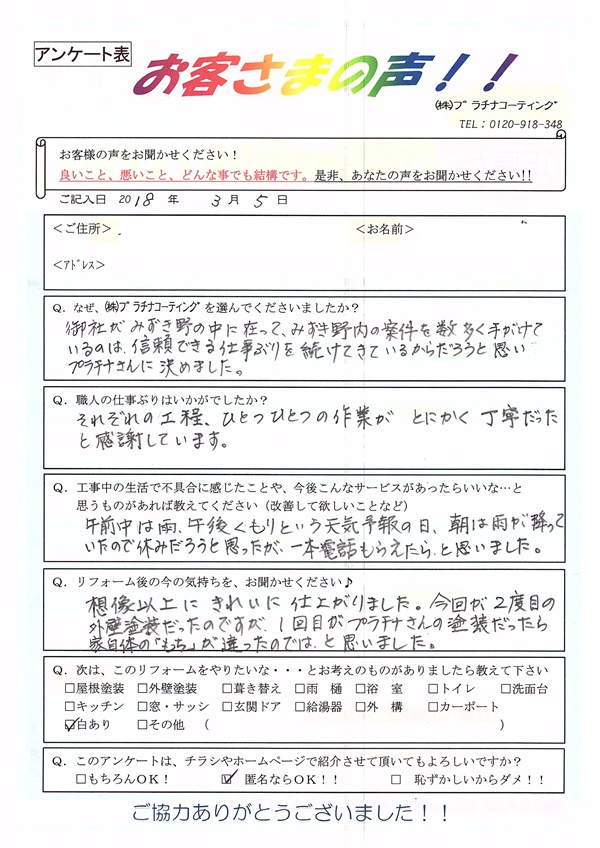 アンケート表
お客さまの声！！
㈱ﾌﾟﾗﾁﾅｺｰﾃｨﾝｸﾞ
TEL：0120-918-348
お客様の声をお聞かせください！
良いこと、悪いこと、どんな事でも結構です。是非、あなたの声をお聞かせください!!
ご記入日 2018 年 3 月 5 日
＜ご住所＞ ＜お名前＞
＜ｱﾄﾞﾚｽ＞
Q．なぜ、㈱ﾌﾟﾗﾁﾅｺｰﾃｨﾝｸﾞを選んでくださいましたか？
御社がみずき野の中に在って、みずき野内の案件を数多く手がけて
いるのは、信頼できる仕事ぶりを続けてきているからだろうと思い
プラチナさんに決めました。
Q．職人の仕事ぶりはいかがでしたか？
それぞれの工程、ひとつひとつの作業が とにかく丁寧だった
と感謝しています。
Q．工事中の生活で不具合に感じたことや、今後こんなサービスがあったらいいな…と
思うものがあれば教えてください（改善して欲しいことなど）
午前中は雨、午後くもりという天気予報の日、朝は雨が降って
いたので休みだろうと思ったが、一本電話もらえたら、と思いました。
Q．リフォーム後の今の気持ちを、お聞かせください♪
想像以上にきれいに仕上がりました。今回が2度目の
外壁塗装だったのですが、1回目がプラチナさんの塗装だったら
家自体の「もち」が違ったのでは、と思いました。
Q．次は、このリフォームをやりたいな・・・とお考えのものがありましたら教えて下さい
□屋根塗装 □外壁塗装 □葺き替え □雨 樋 □浴 室 □トイレ □洗面台
□キッチン □窓・サッシ □玄関ドア □給湯器 □外 構 □カーポート
☑白あり □その他 （ ）
Q．このアンケートは、チラシやホームページで紹介させて頂いてもよろしいですか？
□もちろんOK！ ☑ 匿名ならOK！！ □ 恥ずかしいからダメ！！
ご協力ありがとうございました！！